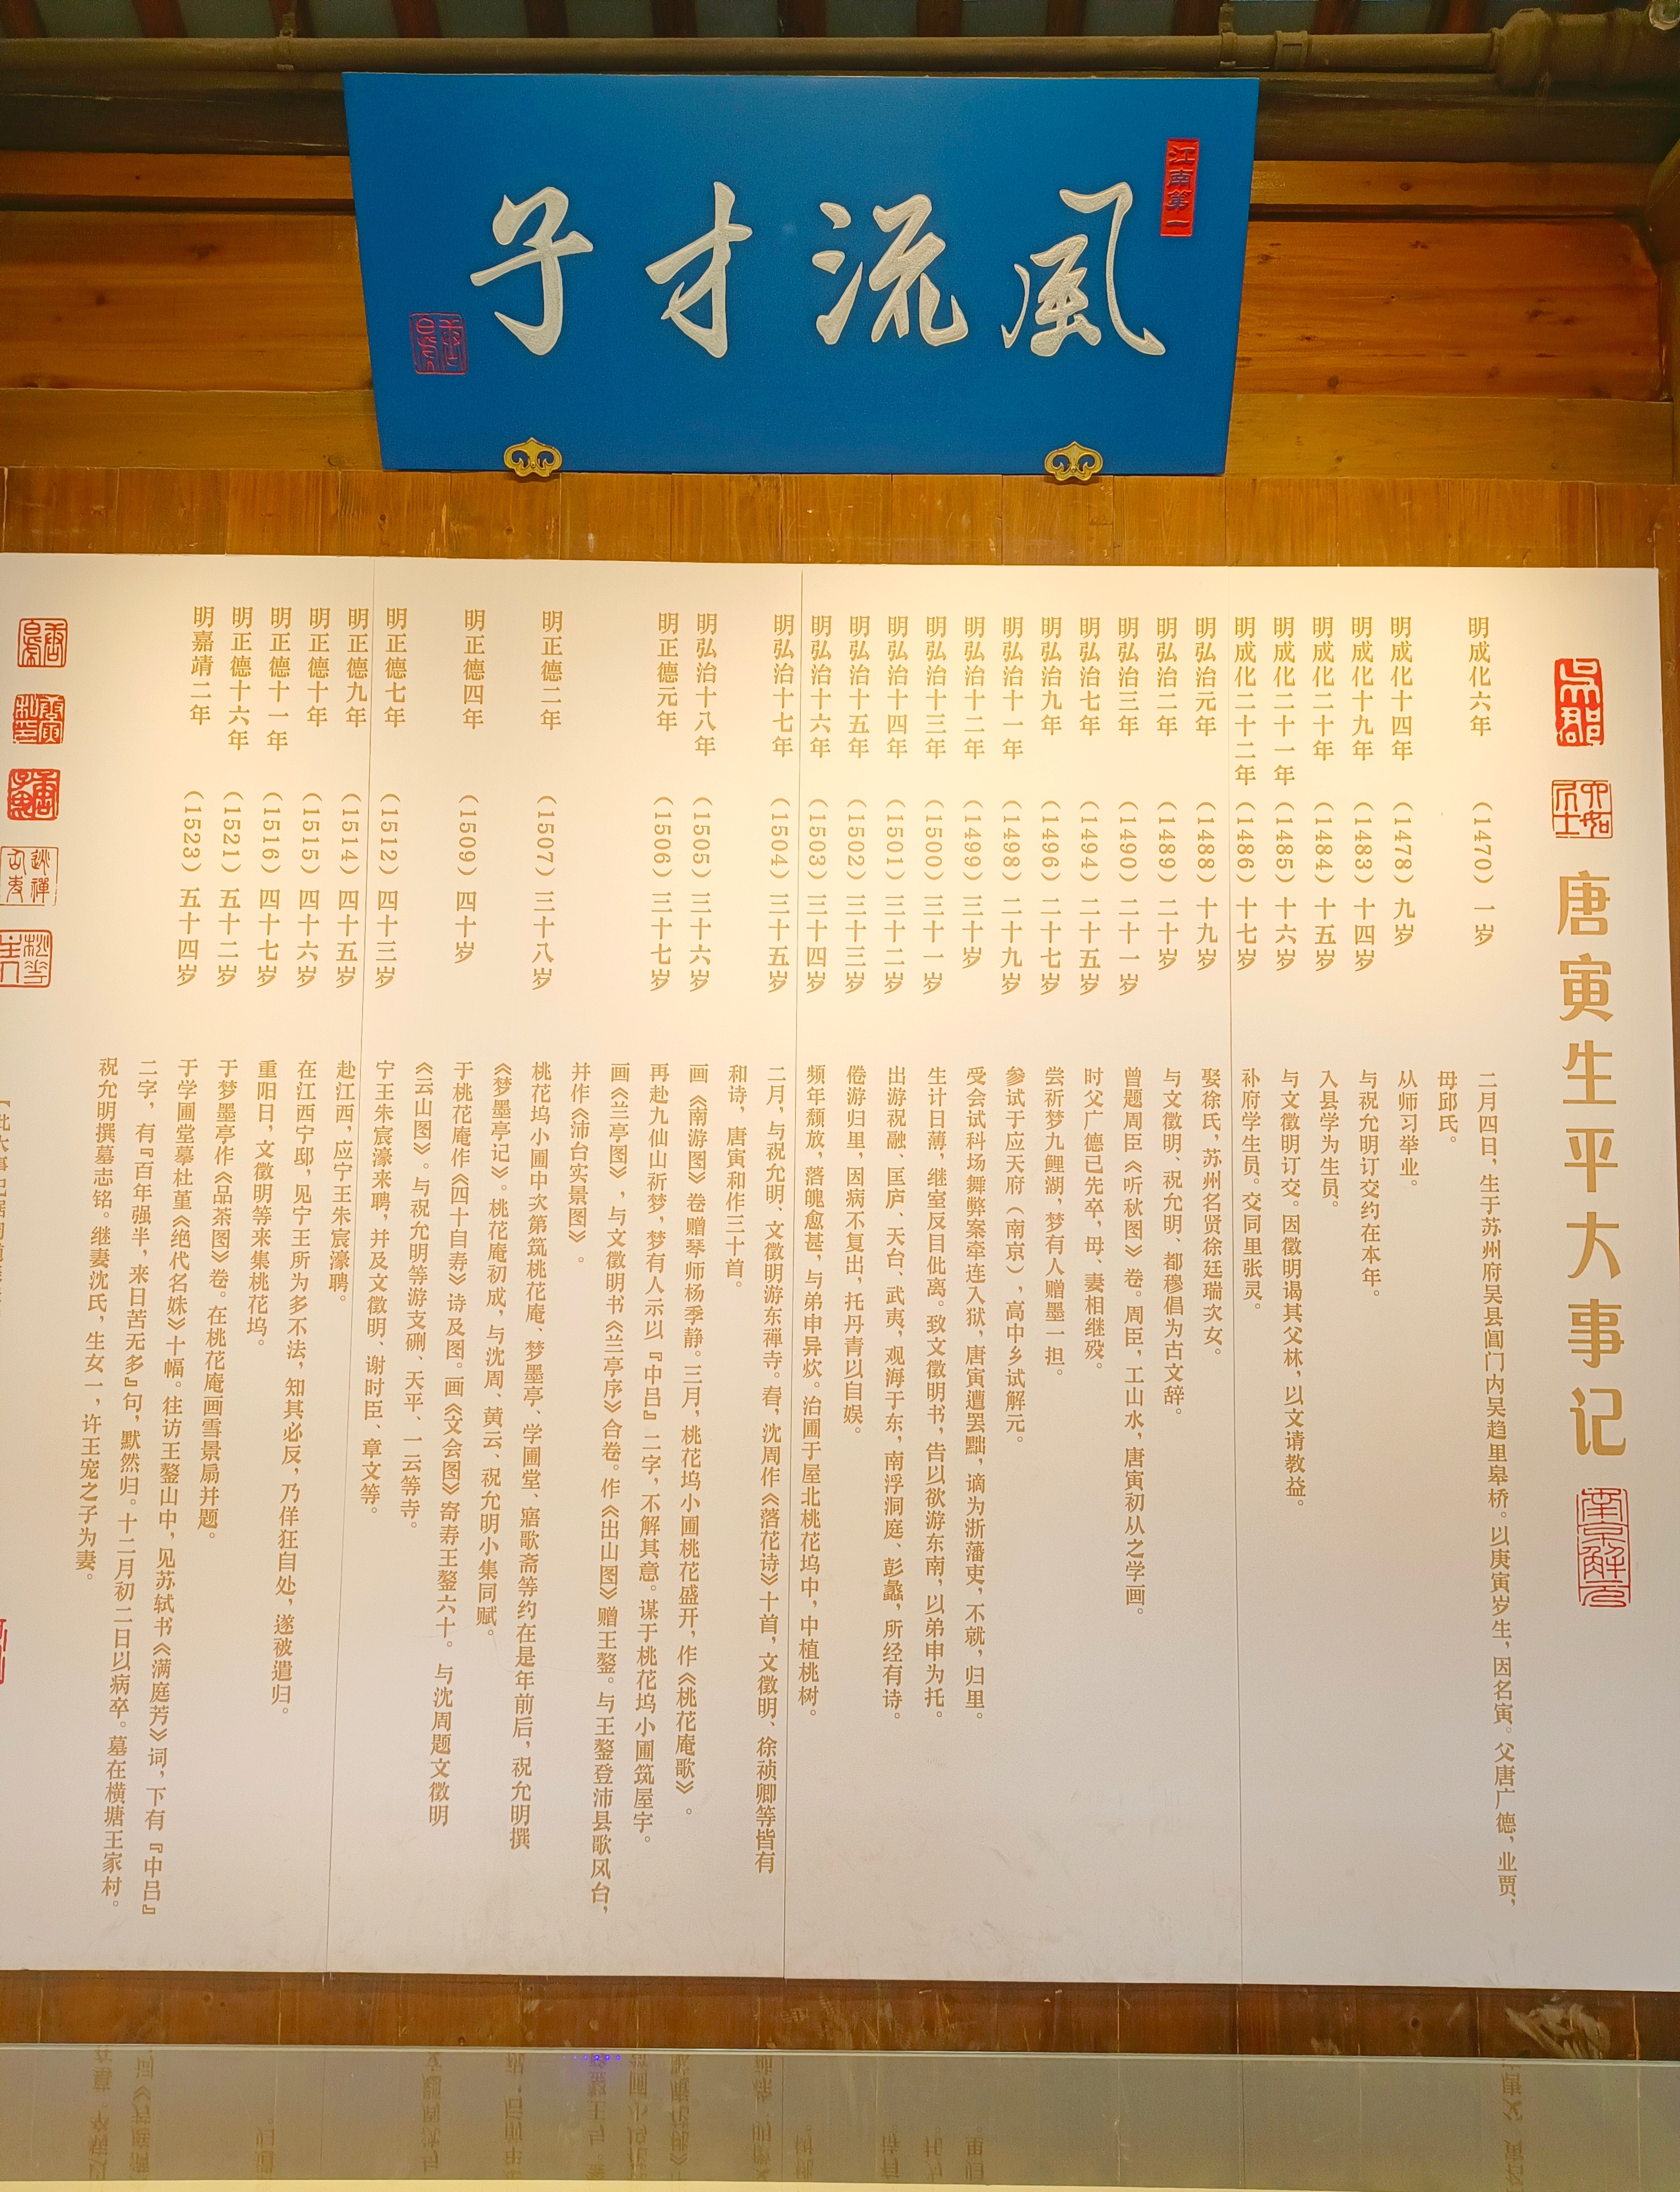 江南第一
风流才子
吴郡
六如居士
唐寅生平大事记
南京解元
明成化六年 （1470）一岁 二月四日，生于苏州府吴县阊门内吴趋里皋桥。以庚寅岁生，因名寅。父唐广德，业贾，
母邱氏。
明成化十四年 （1478）九岁 从师习举业。
明成化十九年 （1483）十四岁 与祝允明订交约在本年。
明成化二十年 （1484）十五岁 入县学为生员。
明成化二十一年 （1485）十六岁 与文徵明订交。因徵明谒其父林，以文请教益。
明成化二十二年 （1486）十七岁 补府学生员。交同里张灵。
明弘治元年 （1488）十九岁 娶徐氏，苏州名贤徐廷瑞次女。
明弘治二年 （1489）二十岁 与文徵明、祝允明、都穆倡为古文辞。
明弘治三年 （1490）二十一岁 曾题周臣《听秋图》卷。周臣，工山水，唐寅初从之学画。
明弘治七年 （1494）二十五岁 时父广德已先卒，母、妻相继殁。
明弘治九年 （1496）二十七岁 尝祈梦九鲤湖，梦有人赠墨一担。
明弘治十一年 （1498）二十九岁 参试于应天府（南京），高中乡试解元。
明弘治十二年 （1499）三十岁 受会试科场舞弊案牵连入狱，唐寅遭罢黜，谪为浙藩吏，不就，归里。
明弘治十三年 （1500）三十一岁 生计日薄，继室反目仳离。致文徵明书，告以欲游东南，以弟申为托。
明弘治十四年 （1501）三十二岁 出游祝融、匡庐、天台、武夷，观海于东，南浮洞庭、彭蠡，所经有诗。
明弘治十五年 （1502）三十三岁 倦游归里，因病不复出，托丹青以自娱。
明弘治十六年 （1503）三十四岁 频年颓放，落魄愈甚，与弟申异炊。治圃于屋北桃花坞中，中植桃树。
明弘治十七年 （1504）三十五岁 二月，与祝允明、文徵明游东禅寺。春，沈周作《落花诗》十首，文徵明、徐祯卿等皆有
和诗，唐寅和作三十首。
明弘治十八年 （1505）三十六岁 画《南游图》卷赠琴师杨季静。三月，桃花坞小圃桃花盛开，作《桃花庵歌》。
明正德元年 （1506）三十七岁 再赴九仙山祈梦，梦有人示以『中吕』二字，不解其意。谋于桃花坞小圃筑屋宇。
画《兰亭图》，与文徵明书《兰亭序》合卷。作《出山图》赠王鏊。与王鏊登沛县歌风台，
并作《沛台实景图》。
明正德二年 （1507）三十八岁 桃花坞小圃中次第筑桃花庵、梦墨亭、学圃堂、寤歌斋等约在是年前后，祝允明撰
《梦墨亭记》。桃花庵初成，与沈周、黄云、祝允明小集同赋。
明正德四年 （1509）四十岁 于桃花庵作《四十自寿》诗及图。画《文会图》寄寿王鏊六十。与沈周题文徵明
《云山图》。与祝允明等游支硎、天平、一云等寺。
明正德七年 （1512）四十三岁 宁王朱宸濠来聘，并及文徵明、谢时臣、章文等。
明正德九年 （1514）四十五岁 赴江西，应宁王朱宸濠聘。
明正德十年 （1515）四十六岁 在江西宁邸，见宁王所为多不法，知其必反，乃佯狂自处，遂被遣归。
明正德十一年 （1516）四十七岁 重阳日，文徵明等来集桃花坞。
明正德十六年 （1521）五十二岁 于梦墨亭作《品茶图》卷。在桃花庵画雪景扇并题。
明嘉靖二年 （1523）五十四岁 于学圃堂摹杜堇《绝代名姝》十幅。往访王鏊山中，见苏轼书《满庭芳》词，下有『中吕』
二字，有『百年强半，来日苦无多』句，默然归。十二月初二日以病卒。墓在横塘王家村。
祝允明撰墓志铭。继妻沈氏，生女一，许王宠之子为妻。
逃禅